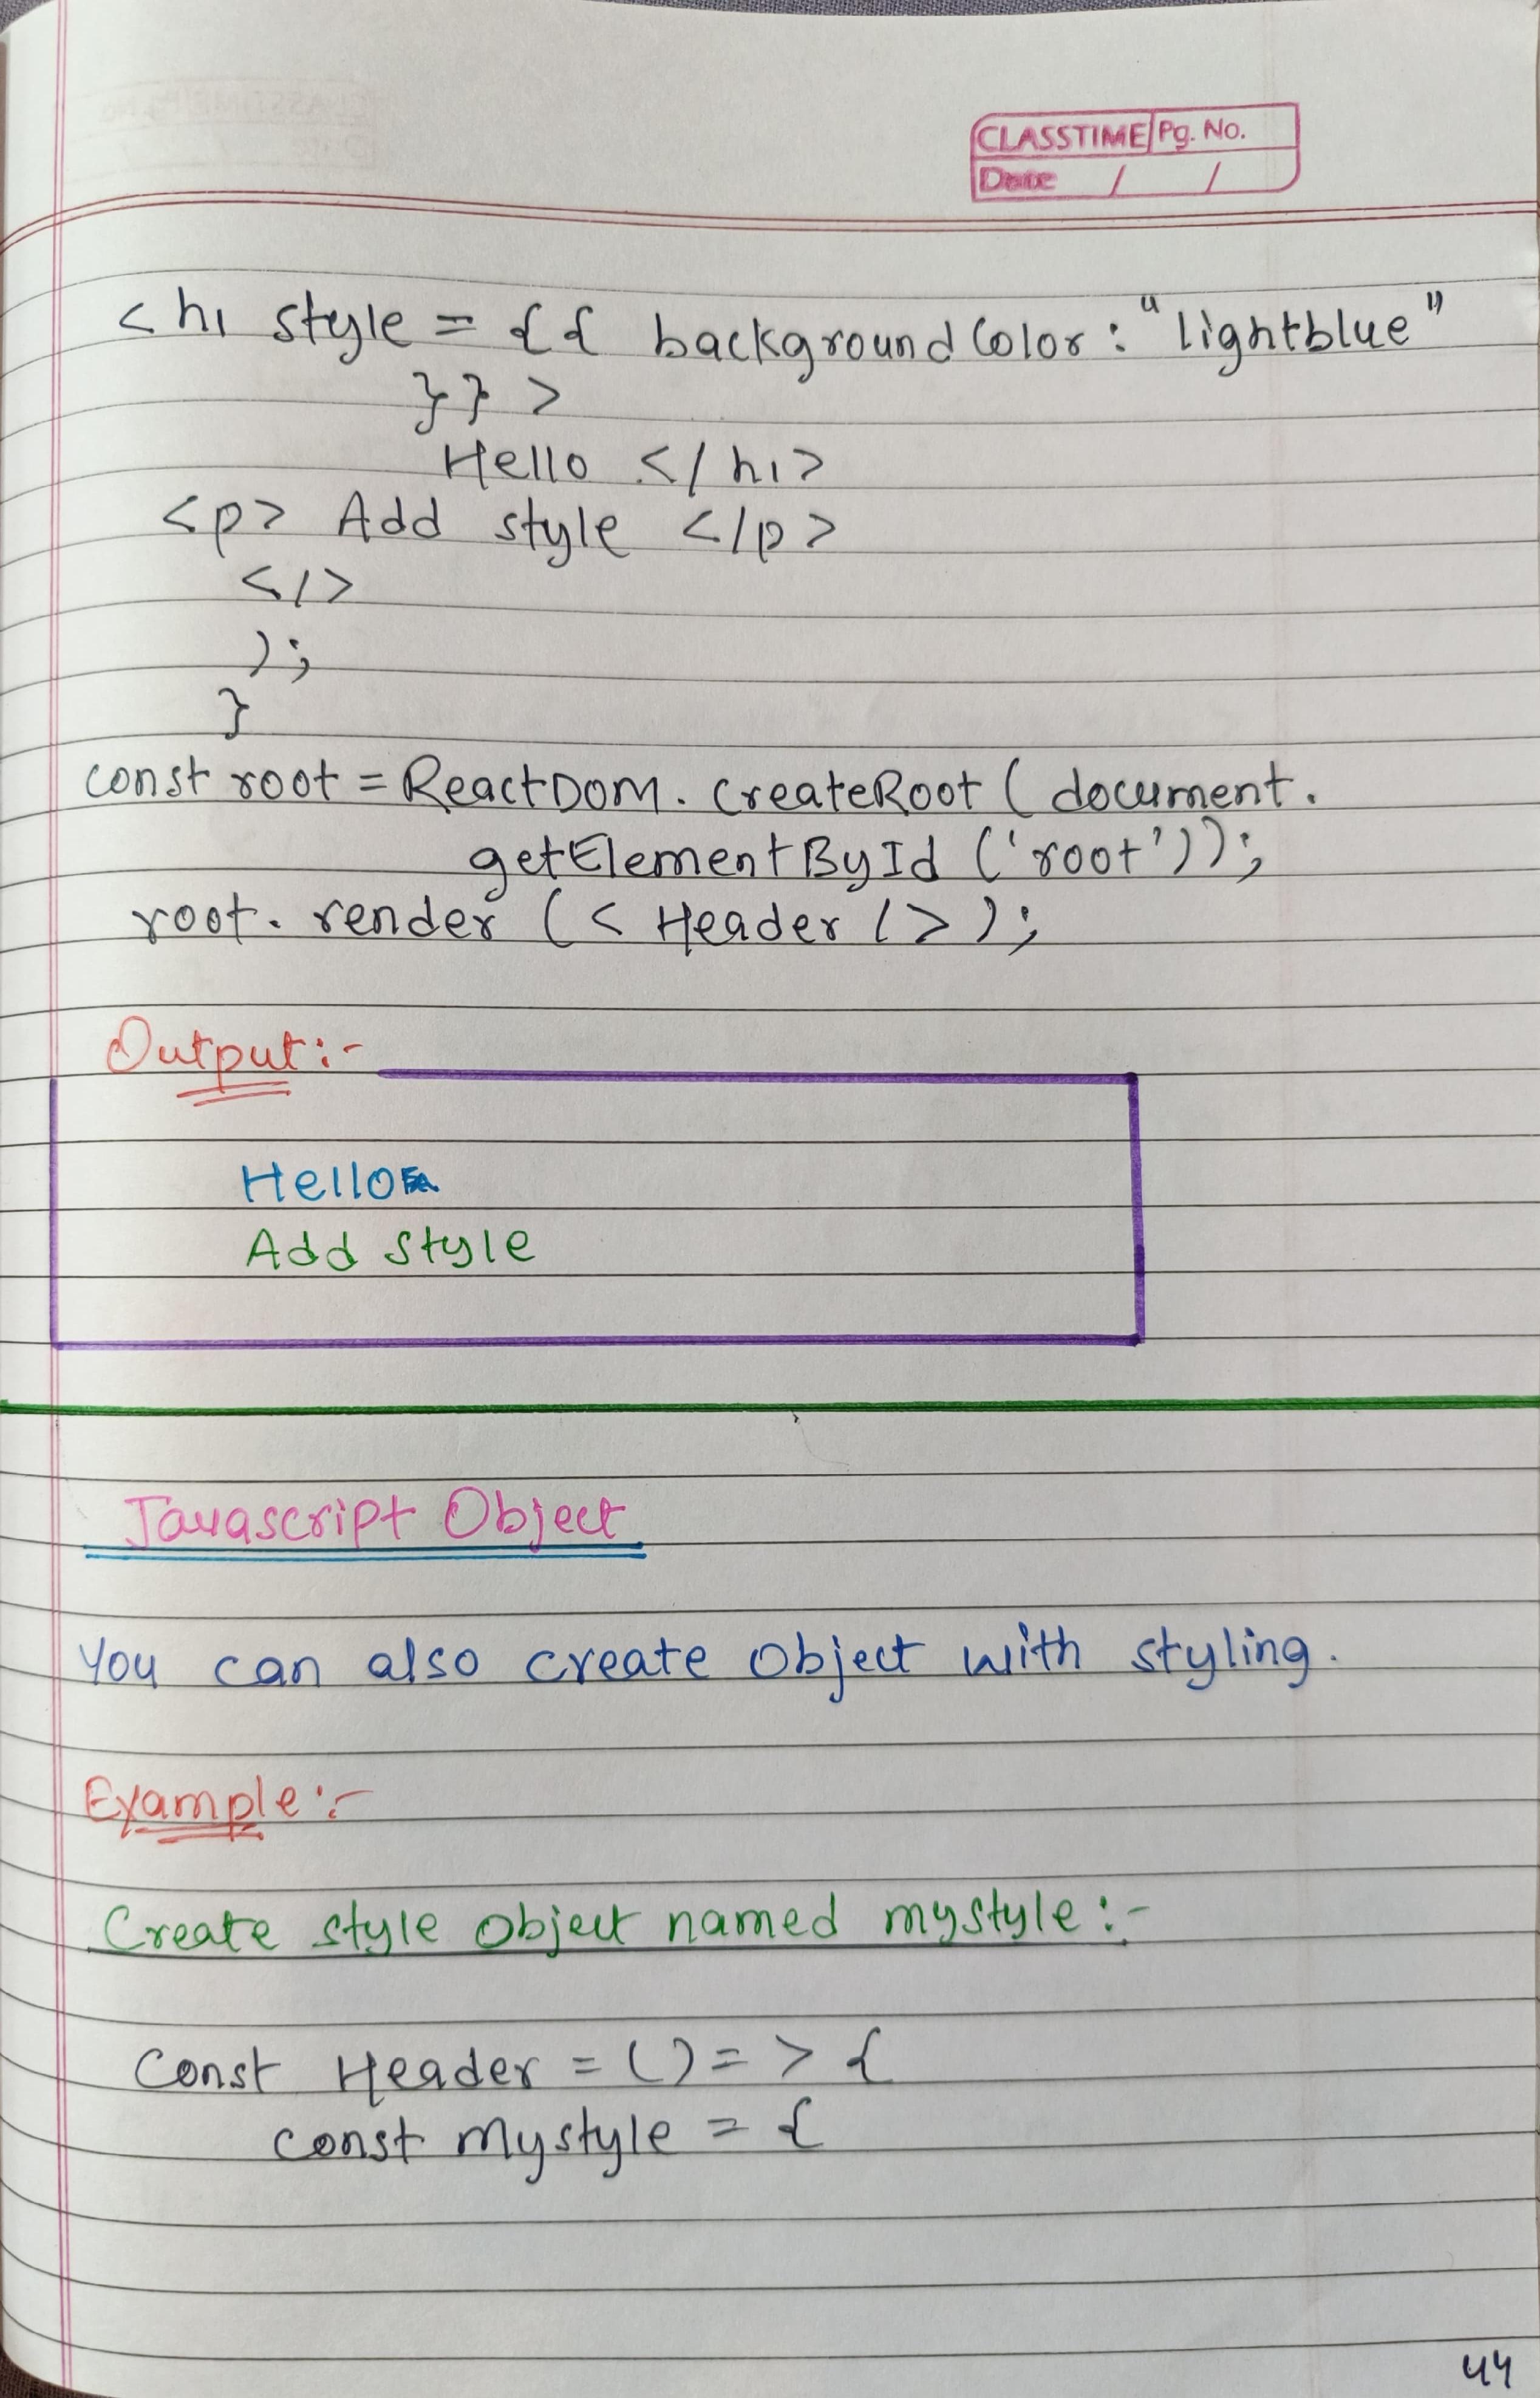 CLASSTIME Pg. No.
Date / /
<h1 style = {{ backgroundColor : "lightblue"
}} >
Hello </h1>
<p> Add style </p>
</>
);
}
const root = ReactDOM. createRoot ( document.
getElementById ('root'));
root. render ( < Header /> );
Output:-
Hello
Add style
Javascript Object
You can also create object with styling.
Example:-
Create style object named mystyle:-
Const Header = () = > {
const mystyle = {
44